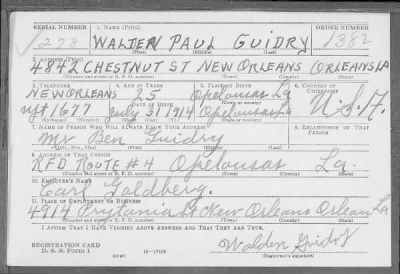 SERIAL NUMBER 1. NAME (Print) ORDER NUMBER
278 WALDEN PAUL GUIDRY 1382
(First) (Middle) (Last)
2. ADDRESS (Print)
4842 CHESTNUT ST NEW ORLEANS ORLEANS LA
(Number and street or R. F. D. number) (Town) (County) (State)
3. TELEPHONE 4. AGE IN YEARS 5. PLACE OF BIRTH 6. COUNTRY OF CITIZENSHIP
NEW ORLEANS 25 Opelousas La
DATE OF BIRTH (Town or county)
upt 1677 July 31 1914 Opelousas La U.S.A.
(Exchange) (Number) (Mo.) (Day) (Yr.) (State or country)
7. NAME OF PERSON WHO WILL ALWAYS KNOW YOUR ADDRESS 8. RELATIONSHIP OF THAT PERSON
Mr Ben Guidry
(Mr., Mrs., Miss) (First) (Middle) (Last)
9. ADDRESS OF THAT PERSON
RFD ROUTE #4 Opelousas La.
(Number and street or R. F. D. number) (Town) (County) (State)
10. EMPLOYER'S NAME
Earl Goldberg.
11. PLACE OF EMPLOYMENT OR BUSINESS
4914 Prytania St New Orleans Orleans La
(Number and street or R. F. D. number) (Town) (County) (State)
I AFFIRM THAT I HAVE VERIFIED ABOVE ANSWERS AND THAT THEY ARE TRUE.
REGISTRATION CARD
D. S. S. Form 1 Walden Guidry
(Registrant's signature)